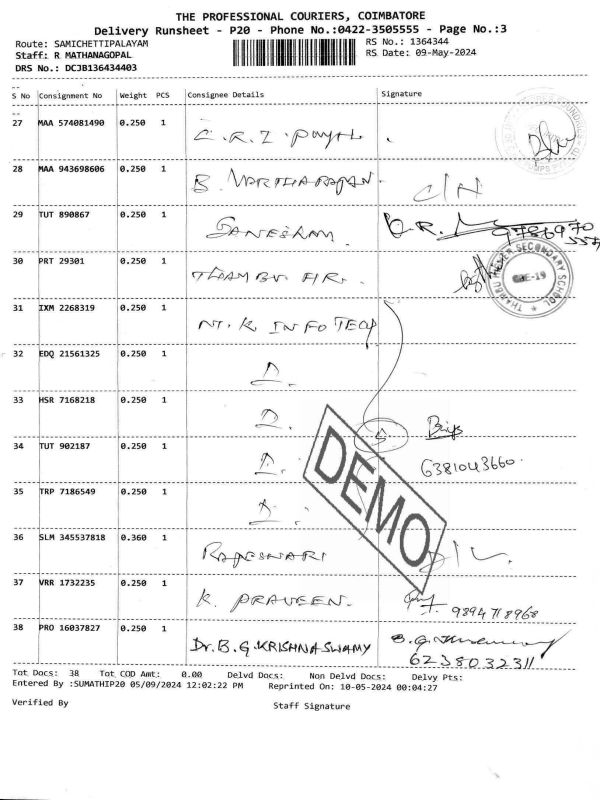 THE PROFESSIONAL COURIERS, COIMBATORE
Delivery Runsheet - P20 - Phone No.:0422-3505555 - Page No.:3
Route: SAMICHETTIPALAYAM RS No.: 1364344
Staff: R MATHANAGOPAL RS Date: 09-May-2024
DRS No.: DCJB136434403
S No Consignment No Weight PCS Consignee Details Signature
27 MAA 574081490 0.250 1 C.R.I.
28 MAA 943698606 0.250 1 B. VARTHARAJAN
29 TUT 890867 0.250 1 GANESHAM.
30 PRT 29301 0.250 1 THAMBU. HR. THAMBU HIGHER SECONDARY SCHOOL CBE-19
31 IXM 2268319 0.250 1 NT.K INFOTECH
32 EDQ 21561325 0.250 1
33 HSR 7168218 0.250 1
34 TUT 902187 0.250 1 5 6381043660.
35 TRP 7186549 0.250 1
DEMO
36 SLM 345537818 0.360 1 RAJESWARI
37 VRR 1732235 0.250 1 K. PRAVEEN. 9894718968
38 PRO 16037827 0.250 1 Dr. B. G. KRISHNASWAMY 6238032311
Tot Docs: 38 Tot COD Amt: 0.00 Delvd Docs: Non Delvd Docs: Delvy Pts:
Entered By :SUMATHIP20 05/09/2024 12:02:22 PM Reprinted On: 10-05-2024 00:04:27
Verified By Staff Signature